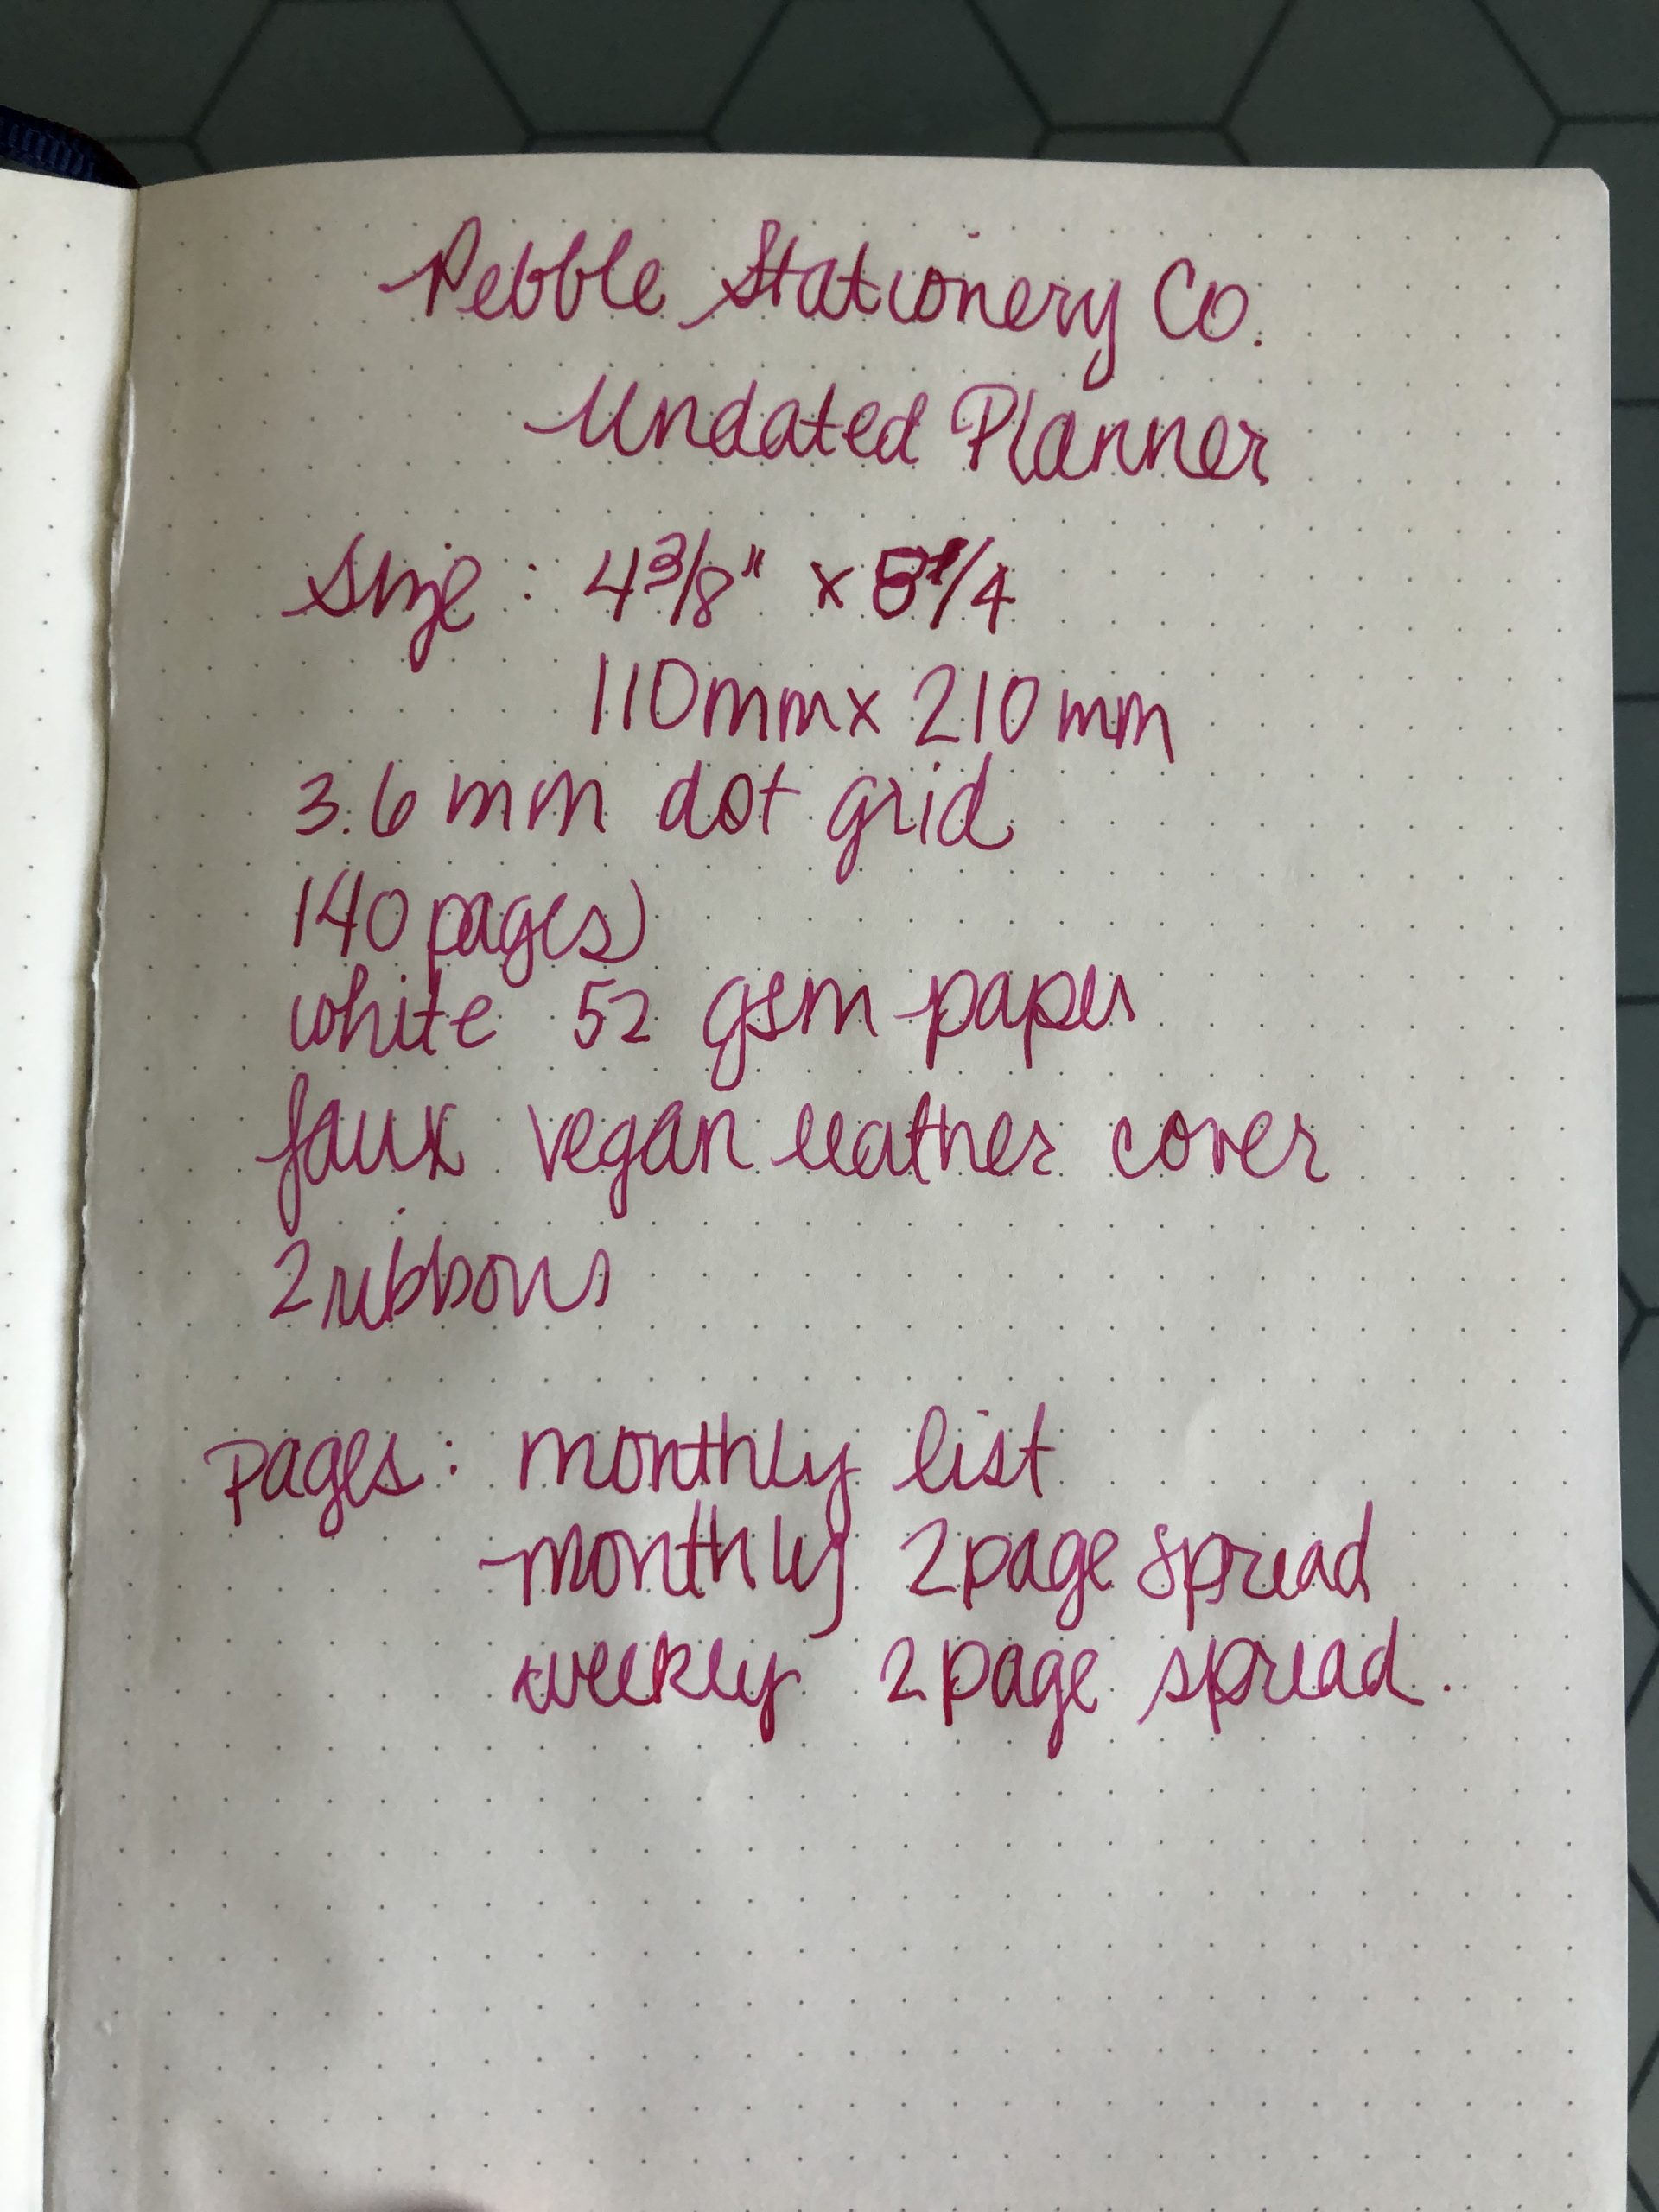 Pebble Stationery Co.
Undated Planner
Size: 4 3/8" x 8 1/4
110mm x 210mm
3.6 mm dot grid
140 pages
white 52 gsm paper
faux vegan leather cover
2 ribbons
pages: monthly list
monthly 2 page spread
weekly 2 page spread.